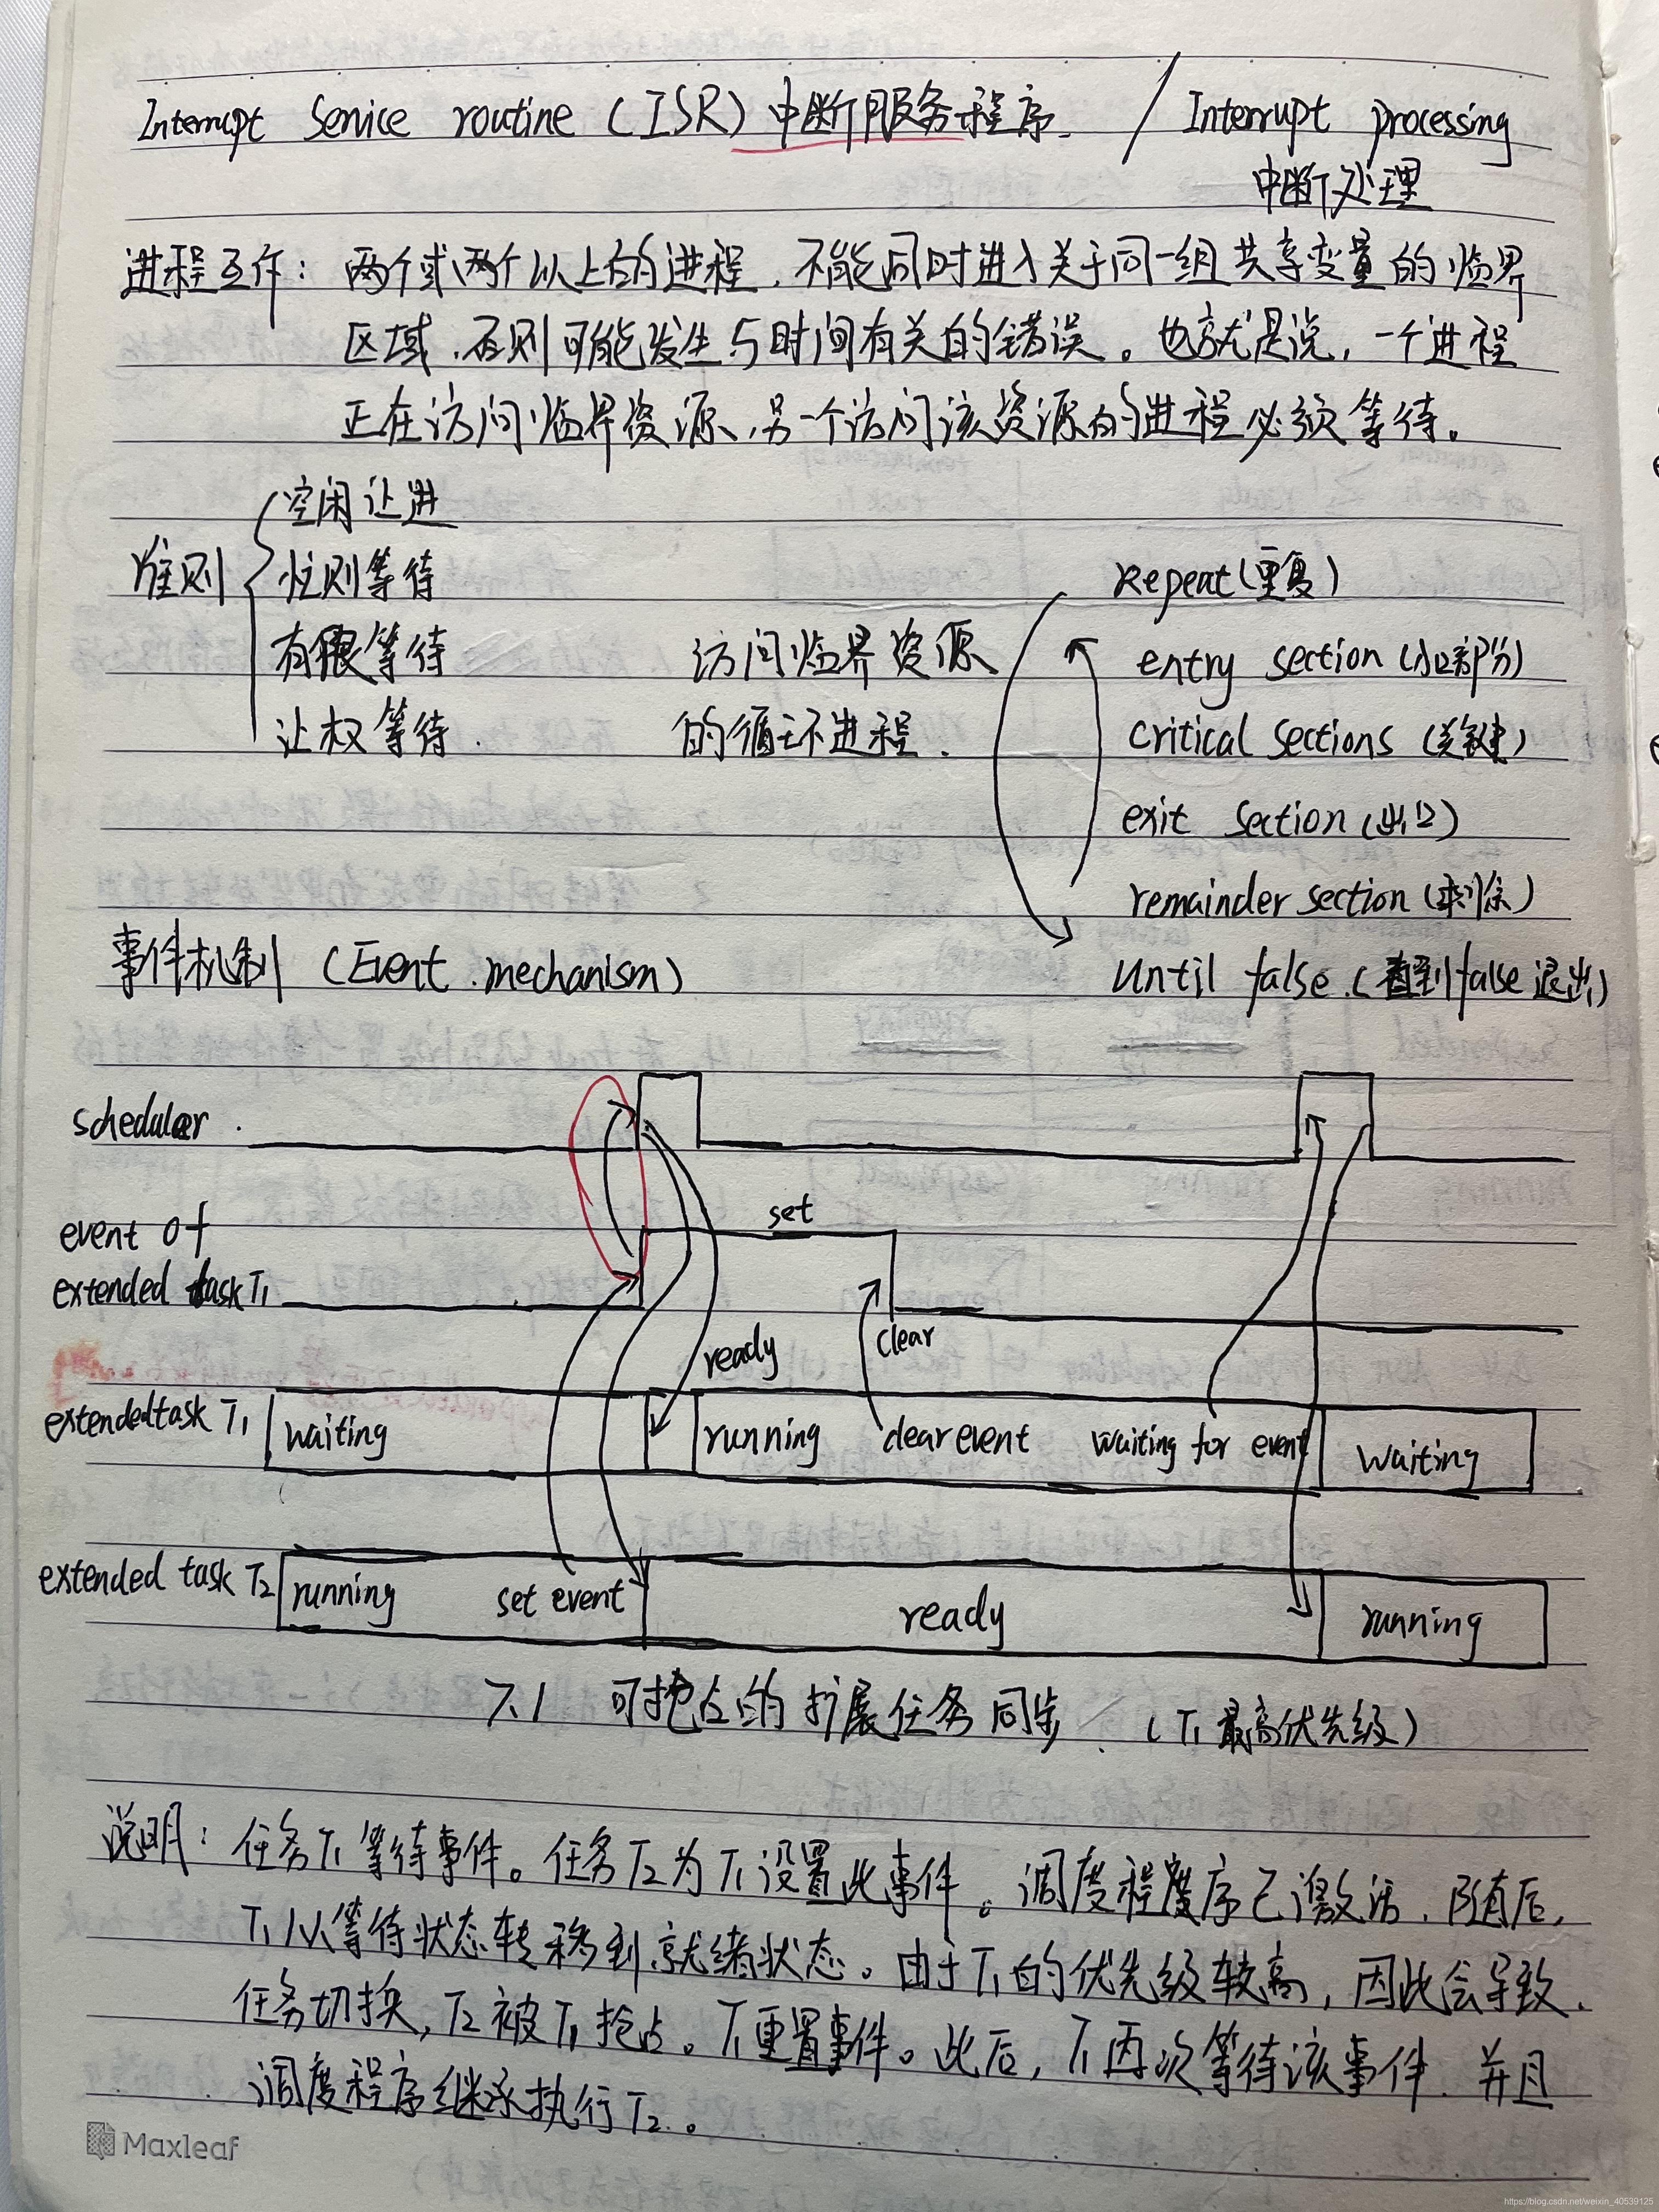 Interrupt Service routine (ISR) 中断服务程序. / Interrupt processing
中断处理
进程互斥: 两个或两个以上的进程, 不能同时进入关于同一组共享变量的临界
区域, 否则可能发生与时间有关的错误。也就是说, 一个进程
正在访问临界资源, 另一个访问该资源的进程必须等待。
准则
空闲让进
忙则等待
有限等待
让权等待.
访问临界资源
的循环进程.
Repeat(重复)
entry section (入口部分)
critical sections (关键)
exit section (出口)
remainder section (剩余)
until false. (直到false退出)
事件机制 (Event mechanism)
scheduler.
event of
extended task T1
set
clear
ready
extended task T1 waiting running clear event waiting for event waiting
extended task T2 running set event ready running
7.1 可抢占的扩展任务同步. (T1最高优先级)
说明: 任务T1等待事件。任务T2为T1设置此事件。调度程序已激活. 随后,
T1从等待状态转移到就绪状态。由于T1的优先级较高, 因此会导致
任务切换, T2被T1抢占。T1重置事件。此后, T1再次等待该事件. 并且
调度程序继续执行T2.。
Maxleaf
https://blog.csdn.net/weixin_40539125